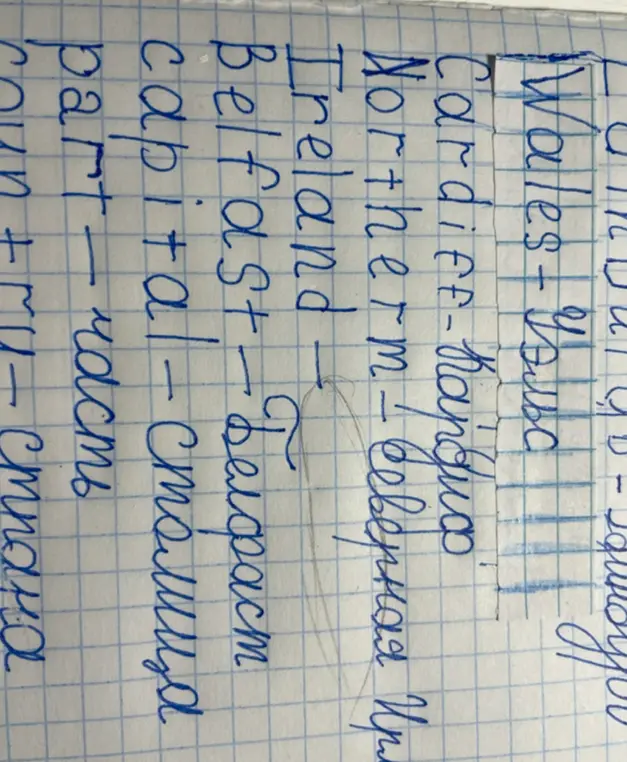 Wales - Уэльс
Cardiff - Кардиф
Northerm - Северная
Ireland -
Belfast - Белфаст
capital - столица
part - часть
country - страна